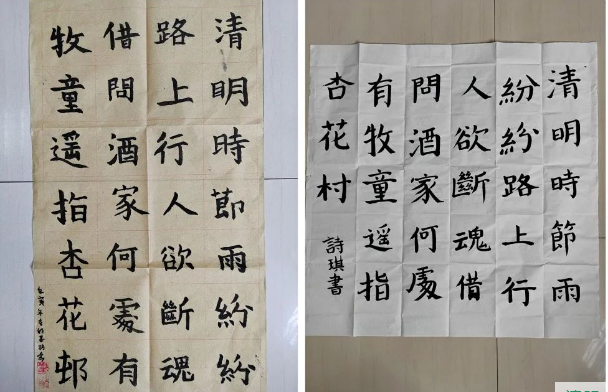 清明時節雨紛紛
路上行人欲斷魂
借問酒家何處有
牧童遥指杏花邨
清明時節雨
紛紛路上行
人欲斷魂借
問酒家何處
有牧童遥指
杏花村
詩琪書